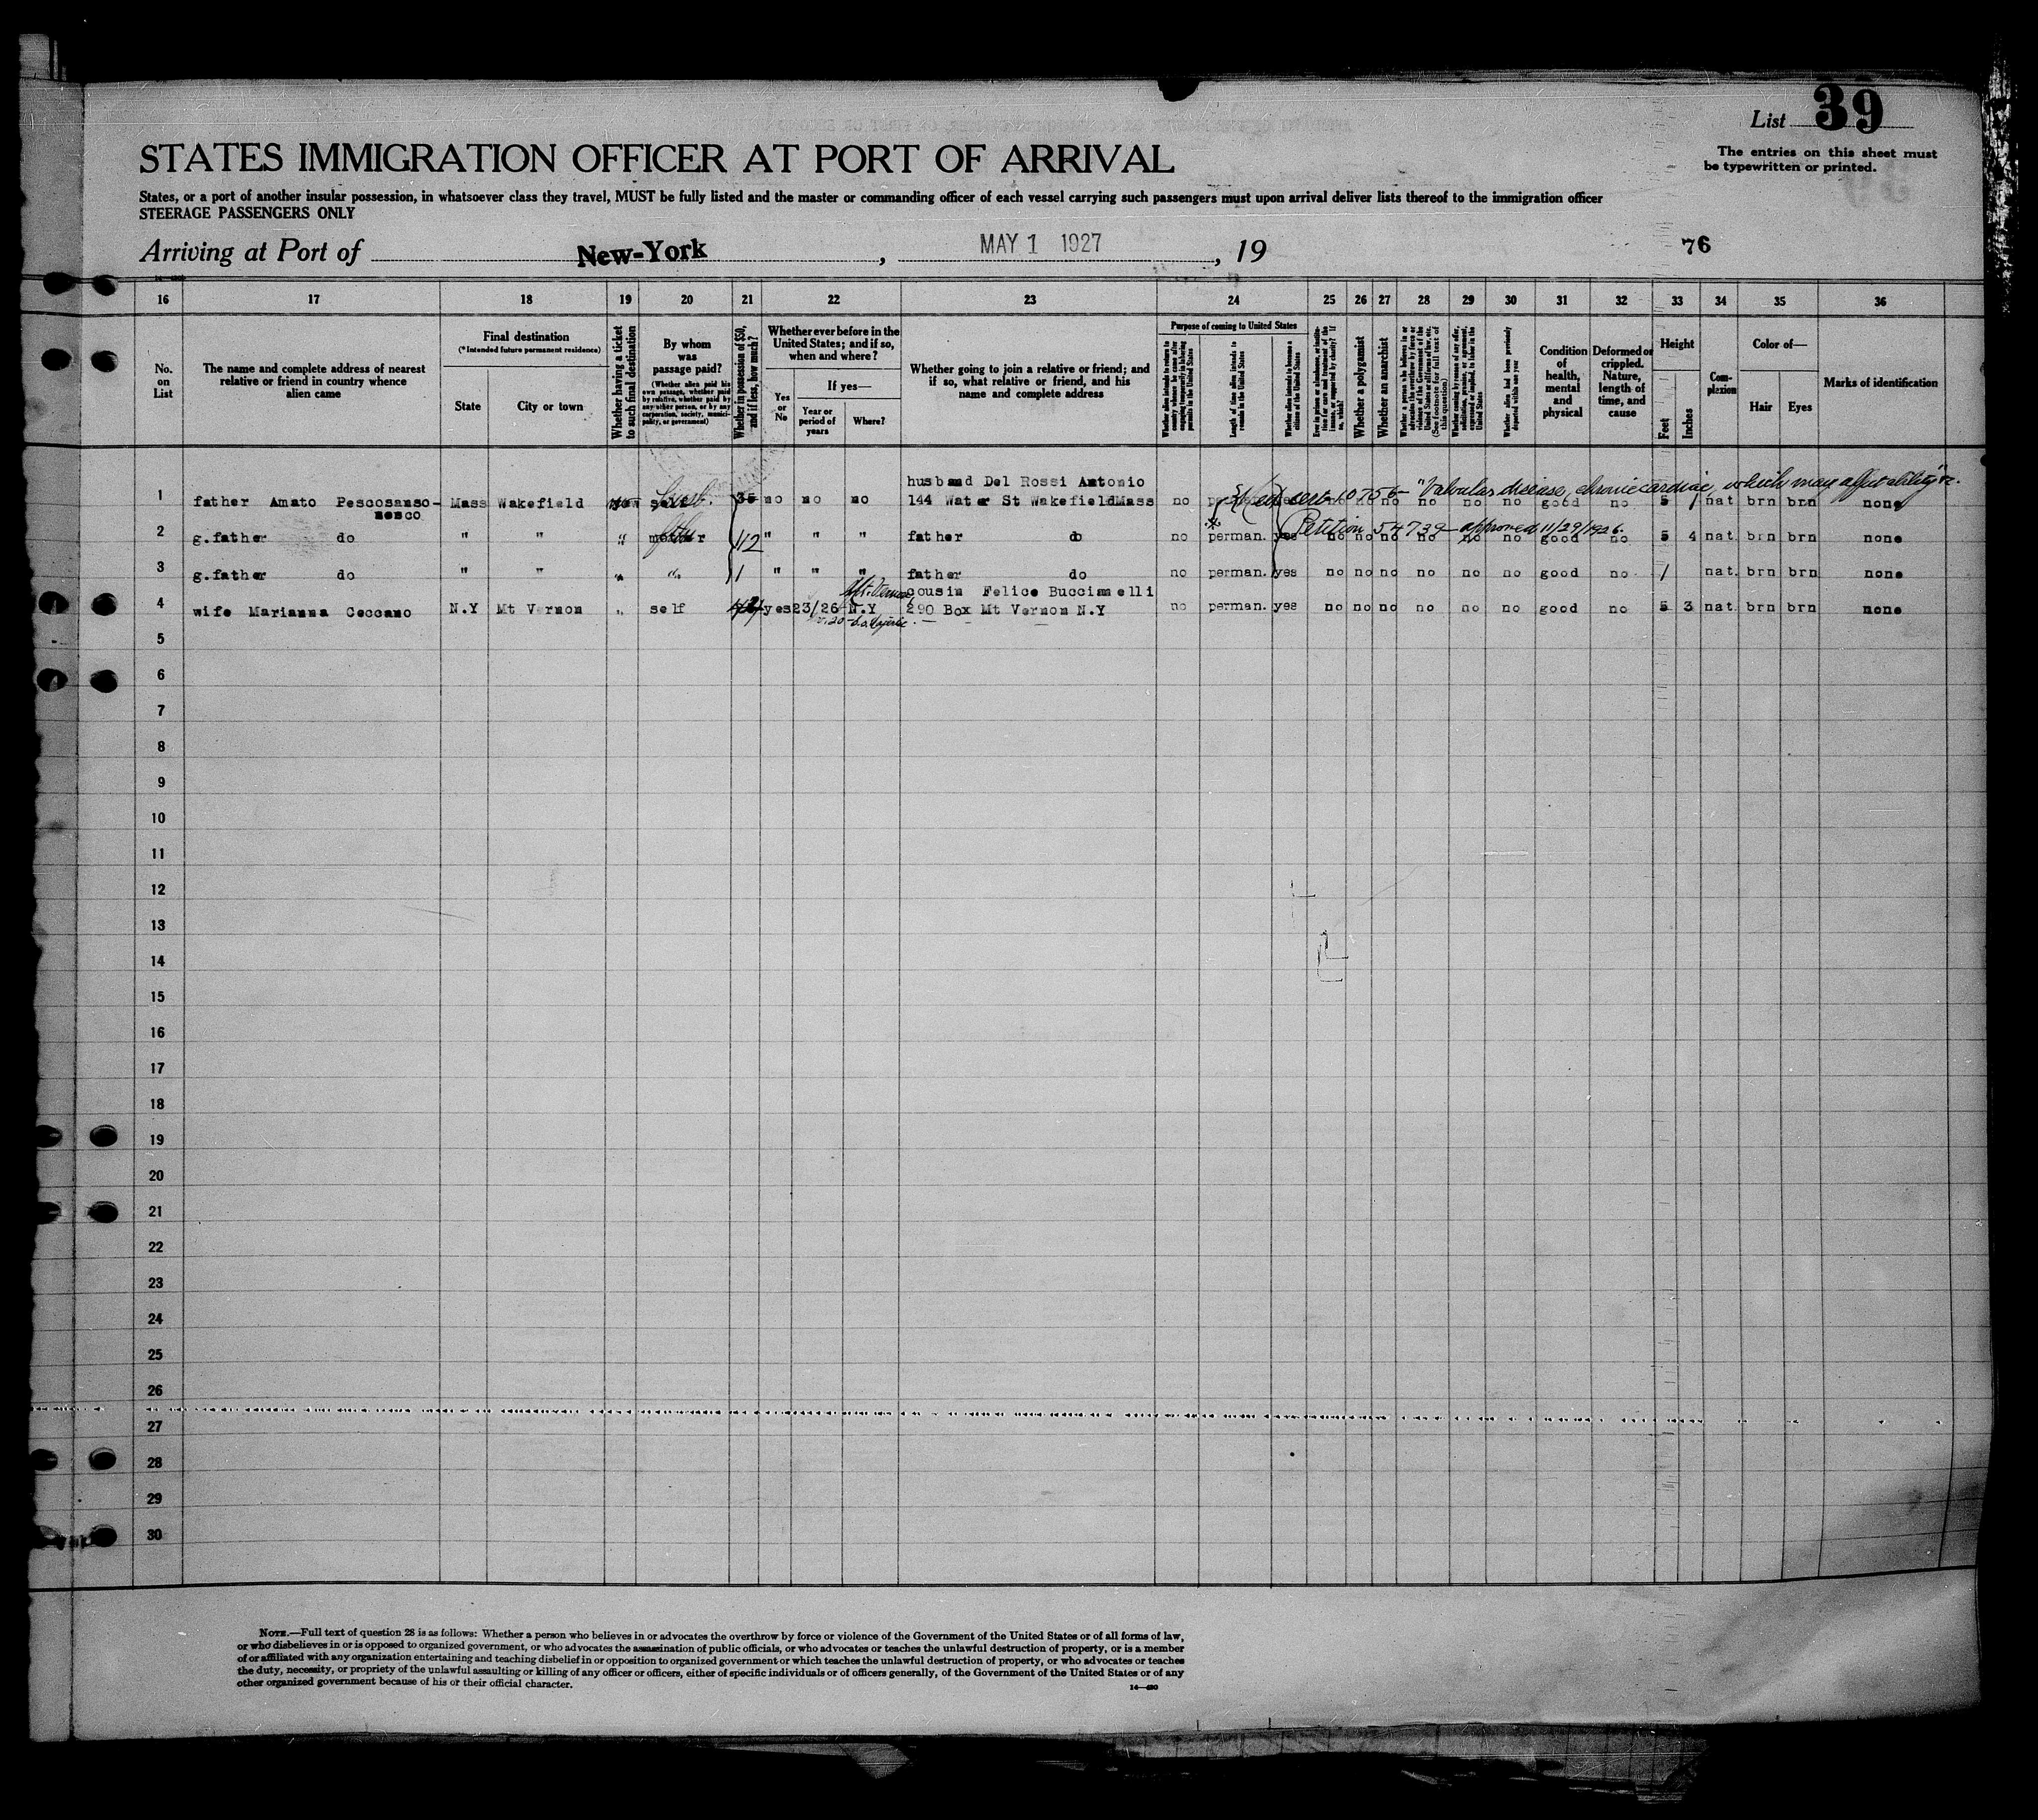 List 39
The entries on this sheet must
be typewritten or printed.
STATES IMMIGRATION OFFICER AT PORT OF ARRIVAL
States, or a port of another insular possession, in whatsoever class they travel, MUST be fully listed and the master or commanding officer of each vessel carrying such passengers must upon arrival deliver lists thereof to the immigration officer
STEERAGE PASSENGERS ONLY
Arriving at Port of New-York, MAY 1 1927, 19
76
16 17 18 19 20 21 22 23 24 25 26 27 28 29 30 31 32 33 34 35 36
No.
on
List
The name and complete address of nearest
relative or friend in country whence
alien came
Final destination
(*Intended future permanent residence)
State
City or town
Whether having a ticket
to such final destination
By whom
was
passage paid?
(Whether alien paid his
own passage, whether paid
by relative, whether paid by
any other person, or by any
corporation, society, munici-
pality, or government)
Whether in possession of $50,
and if less, how much?
Whether ever before in the
United States; and if so,
when and where?
Yes
or
No
If yes—
Year or
period of
years
Where?
Whether going to join a relative or friend; and
if so, what relative or friend, and his
name and complete address
Purpose of coming to United States
Whether alien intends to return to
country whence he came after
engaging temporarily in laboring
pursuits in the United States
Length of time alien intends to
remain in the United States
Whether alien intends to become a
citizen of the United States
Whether a polygamist
Whether an anarchist
Whether alien had been previously
deported within one year
Condition
of
health,
mental
and
physical
Deformed or
crippled.
Nature,
length of
time, and
cause
Height
Feet
Inches
Com-
plexion
Color of—
Hair
Eyes
Marks of identification
husband Del Rossi Antonio
1 father Amato Pescosanso- Mass Wakefield self husb. 35 no no no 144 Water St WakefieldMass no no no no no no no good no 5 1 nat brn brn none
nesco
Med cert 10756- "Valvular disease, chronic cardiac, which may affect ability" &c.
Petition 54739 - approved 11/29/1926.
2 g.father do " " " 112 " " " father do no perman. yes no no no no no no good no 5 4 nat. brn brn none
3 g.father do " " " " 1 " " " father do no perman. yes no no no no no no good no 1 nat. brn brn none
Mt. Vernon cousin Felice Buccimelli
4 wife Marianna Ceccano N.Y Mt Vernon " self yes 23/26 N.Y 290 Box Mt Vernon N.Y no perman. yes no no no no no no good no 5 3 nat. brn brn none
5
6
7
8
9
10
11
12
13
14
15
16
17
18
19
20
21
22
23
24
25
26
27
28
29
30
NOTE.—Full text of question 28 is as follows: Whether a person who believes in or advocates the overthrow by force or violence of the Government of the United States or of all forms of law,
or who disbelieves in or is opposed to organized government, or who advocates the assassination of public officials, or who advocates or teaches the unlawful destruction of property, or is a member
of or affiliated with any organization entertaining and teaching disbelief in or opposition to organized government or which teaches the unlawful destruction of property, or who advocates or teaches
the duty, necessity, or propriety of the unlawful assaulting or killing of any officer or officers, either of specific individuals or of officers generally, of the Government of the United States or of any
other organized government because of his or their official character.
14—480